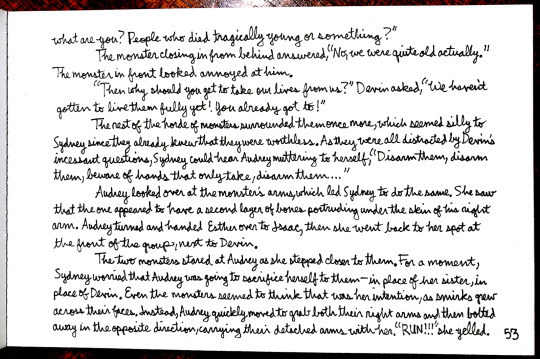 what are you? People who died tragically young or something?"
The monster closing in from behind answered, "No, we were quite old actually."
The monster in front looked annoyed at him.
"Then why should you get to take our lives from us?" Devin asked, "We haven't
gotten to live them fully yet! You already got to!"
The rest of the horde of monsters surrounded them once more, which seemed silly to
Sydney since they already knew that they were worthless. As they were all distracted by Devin's
incessant questions, Sydney could hear Audrey muttering to herself, "Disarm them, disarm
them, beware of hands that only take, disarm them...."
Audrey looked over at the monster's arms, which led Sydney to do the same. She saw
that the one appeared to have a second layer of bones portruding under the skin of his right
arm. Audrey turned and handed Esther over to Isaac, then she went back to her spot at
the front of the group, next to Devin.
The two monsters stared at Audrey as she stepped closer to them. For a moment,
Sydney worried that Audrey was going to sacrifice herself to them—in place of her sister, in
place of Devin. Even the monsters seemed to think that was her intention, as smirks grew
across their faces. Instead, Audrey quickly moved to grab both their right arms and then bolted
away in the opposite direction, carrying their detached arms with her. "RUN!!!" she yelled.
53